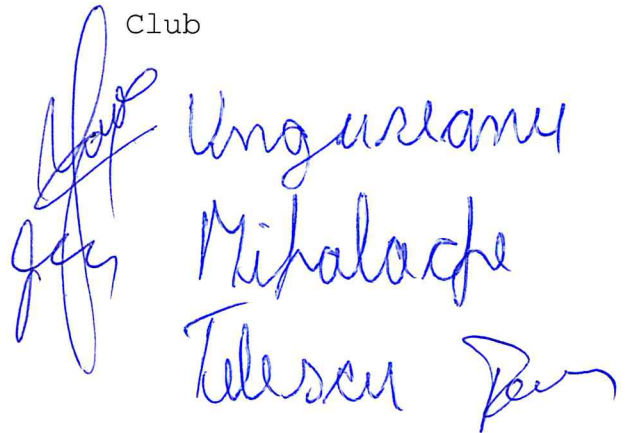 Club
Ungureanu
Mihalache
Telescu